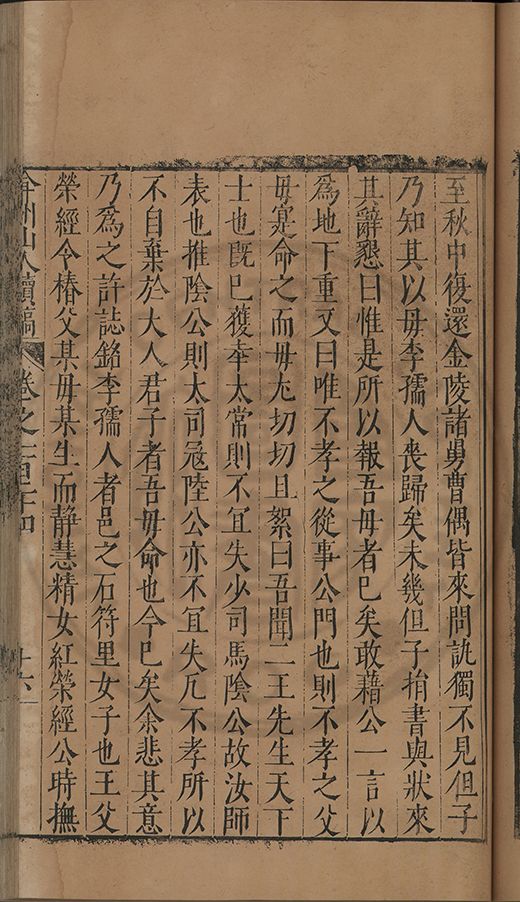 至秋中復還金陵諸舅曹偶皆來問訊獨不見但子
乃知其以毋李孺人喪歸矣未幾但子指書與狀來
其辭懇曰惟是所以報吾毋者巳矣敢藉公一言以
爲地下重又曰唯不孝之從事公門也則不孝之父
毋寔命之而毋尢切切且絮曰吾聞二王先生天下
士也旣巳獲奉太常則不冝失少司馬陰公故汝師
表也推陰公則太司冦陸公亦不冝失凢不孝所以
不自棄於大人君子者吾毋命也今巳矣余悲其意
乃爲之許誌銘李孺人者邑之石符里女子也王父
榮經令椿父某毋某生而静慧精女紅榮經公時撫
弇州山人續稿 卷之一百二十四 十六